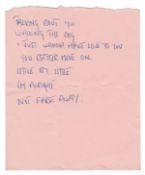 TALKING BOUT YOU
WALKING THE DOG
I JUST WANNA MAKE LOVE TO YOU
YOU BETTER MOVE ON
LITTLE BY LITTLE
I'M ALRIGHT
NOT FADE AWAY